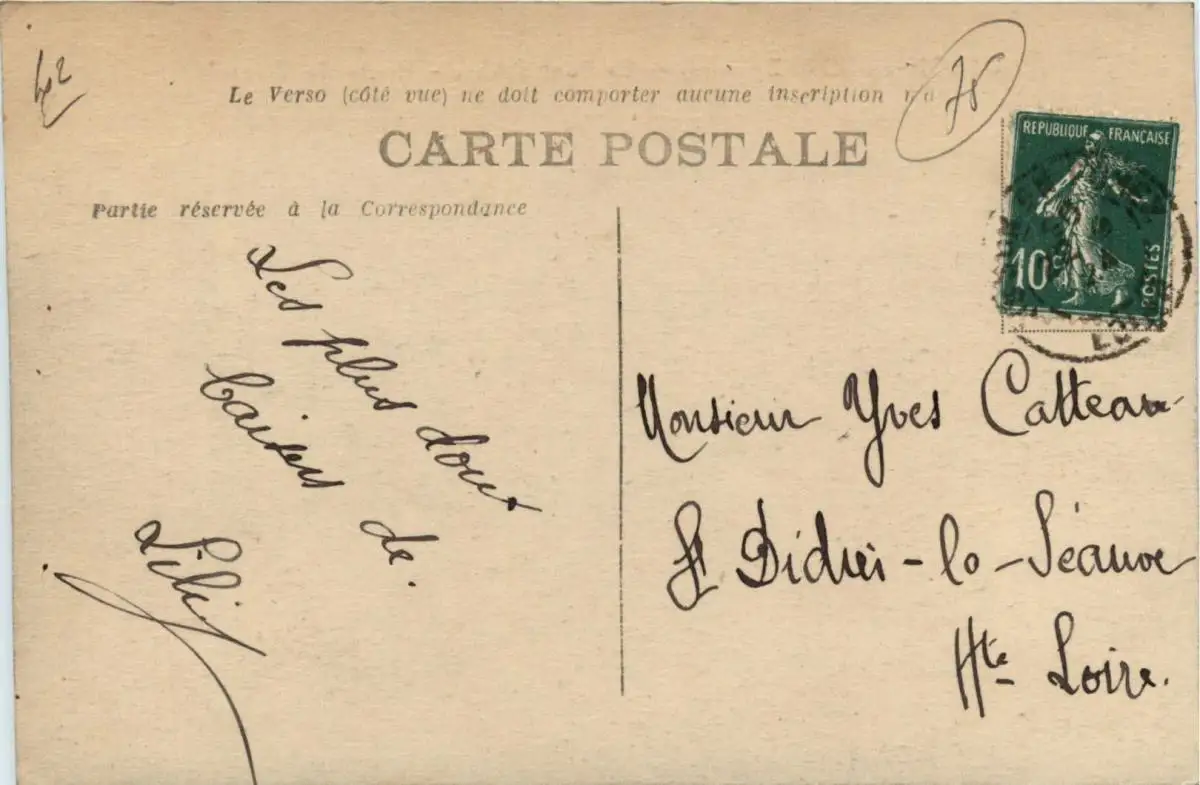 Le Verso (côté vue) ne doit comporter aucune inscription
75
CARTE POSTALE
Partie réservée à la Correspondance
REPUBLIQUE FRANÇAISE
10c
POSTES
Les plus doux
baisers de.
Lili
Monsieur Yves Catteau
St Didier-la-Séauve
Hte Loire.